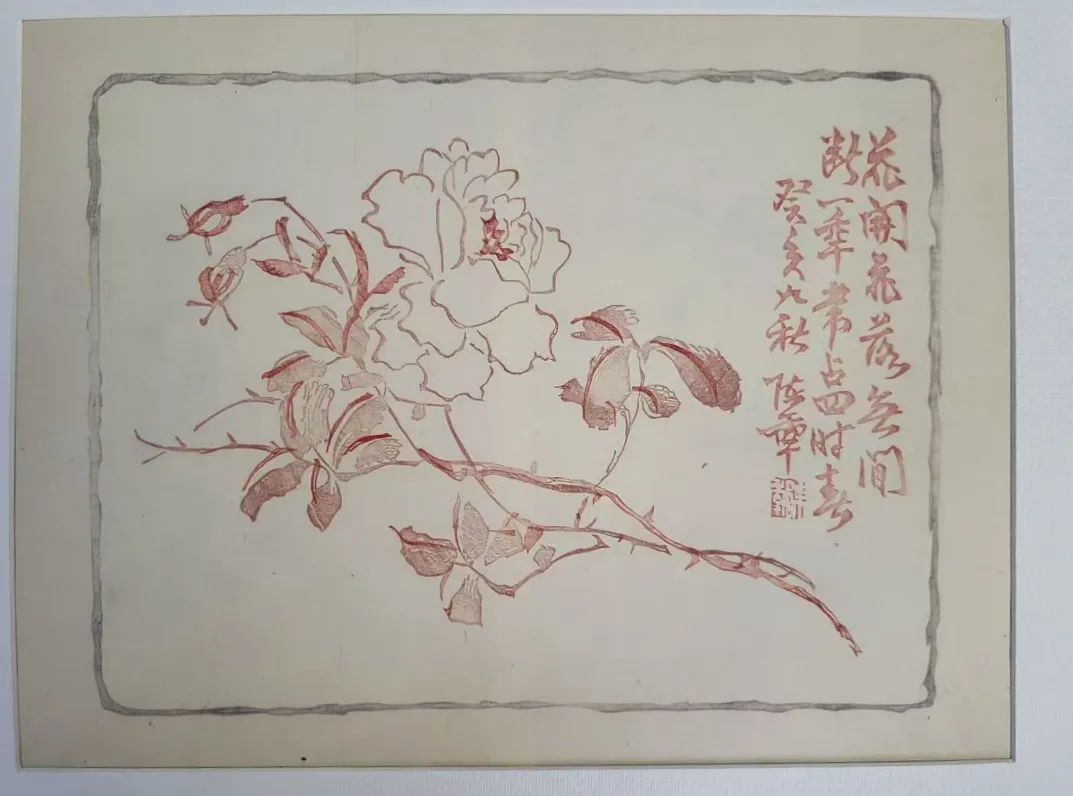 花開花落無間
斷一年常占四时春
癸亥九秋 陈年